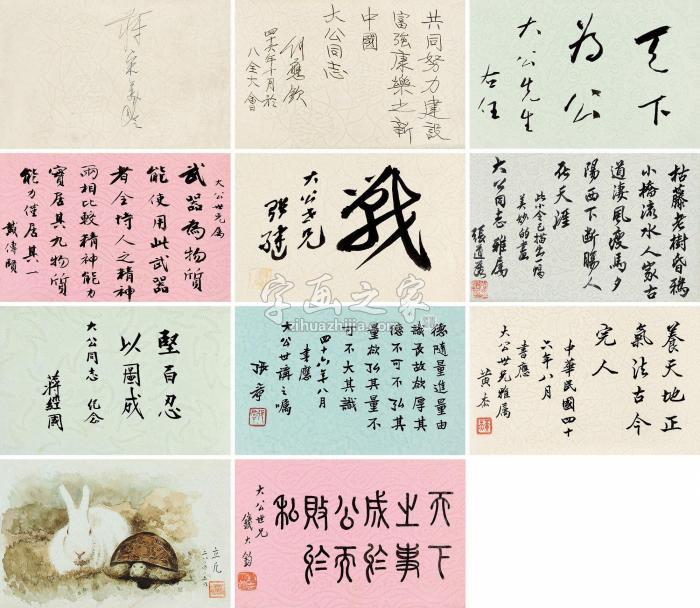 蔣宋美齡
共同努力建設
富強康樂之新
中國
大公同志
何應欽
四六年十月於
八全大會
天下
為公
大公先生
右任
大公世兄属
武器為物質
能使用此武器
者全恃人之精神
兩相比較精神能力
實居其九物質
能力僅居其一
戴傳賢
戰
大公世兄
張繼
枯藤老樹昏鴉
小橋流水人家古
道淒風瘦馬夕
陽西下斷腸人
在天涯
此小令已描出一幅
美妙的畫
大公同志雅屬
張道藩
堅百忍
以圖成
大公同志 紀念
蔣經國
德隨量進量由
識長故欲厚其
德不可不弘其
量欲弘其量不
可不大其識
四十六年八月
書應
大公世講之囑
張羣
養天地正
氣法古今
完人
中華民國四十
六年八月
書應
大公世兄雅屬
黃杰
立凡
天下
之事
成於
公而
敗於
私
大公世兄
錢大鈞
字画之家
zihuazhijia.com